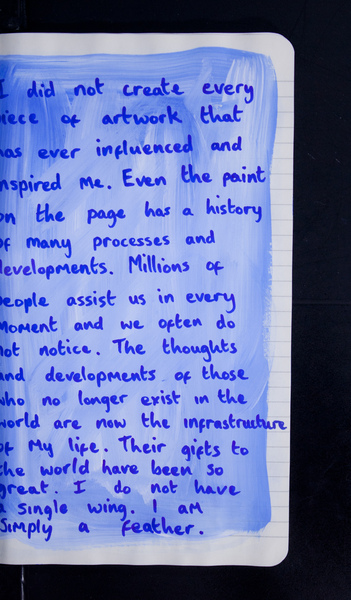 I did not create every
piece of artwork that
has ever influenced and
inspired me. Even the paint
on the page has a history
of many processes and
developments. Millions of
people assist us in every
moment and we often do
not notice. The thoughts
and developments of those
who no longer exist in the
world are now the infrastructure
of my life. Their gifts to
the world have been so
great. I do not have
a single wing. I am
simply a feather.